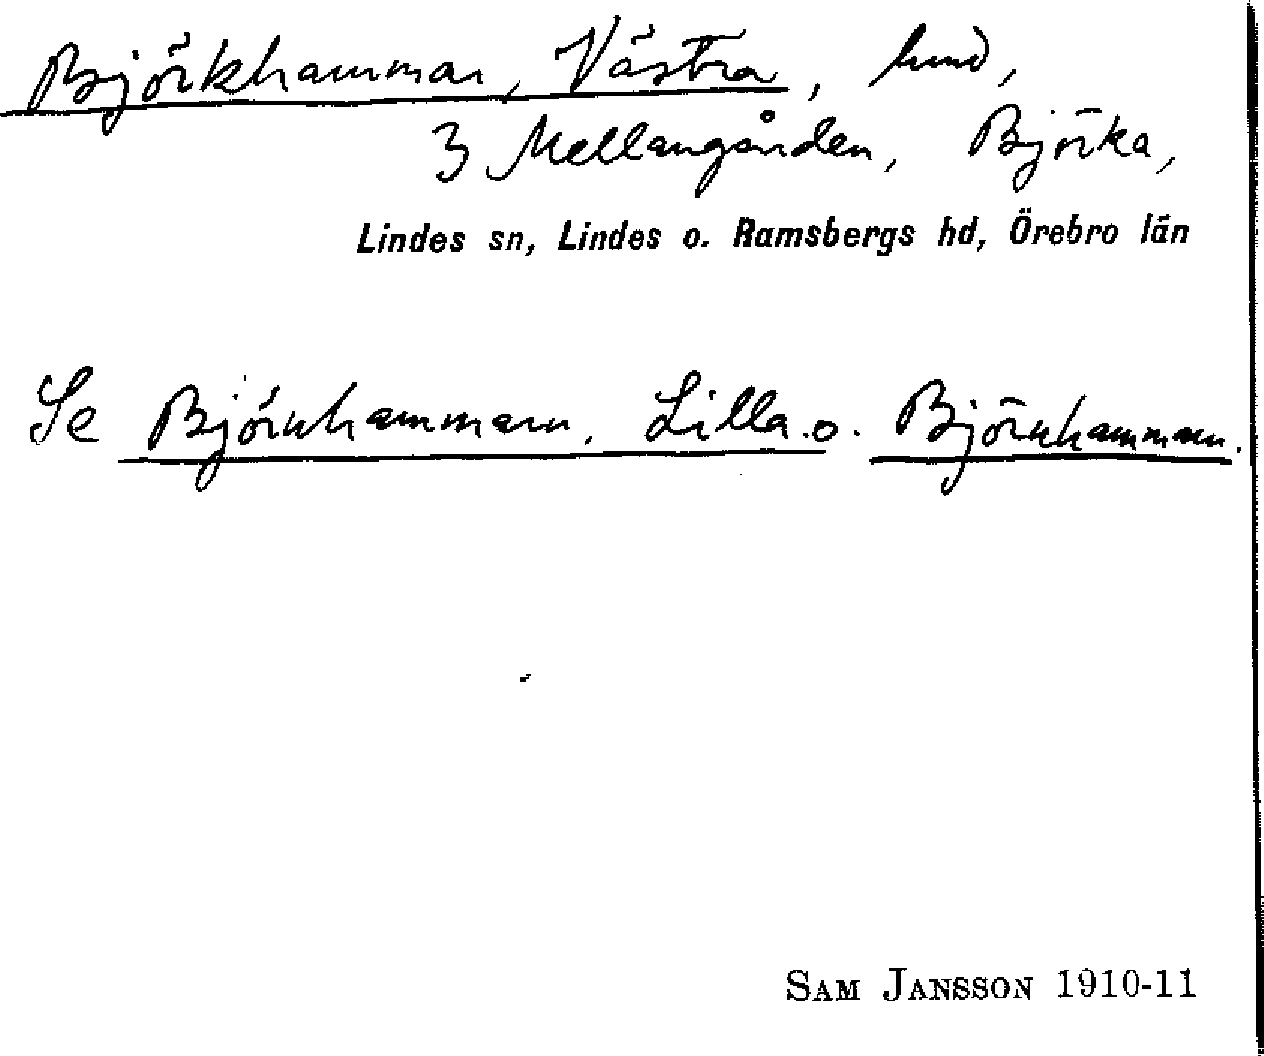 Björkhammar, Västra, lund,
3 Mellangården, Björka,
Lindes sn, Lindes o. Ramsbergs hd, Örebro län
Se Björnhammarn, Lilla o. Björnhammarn.
SAM JANSSON 1910-11